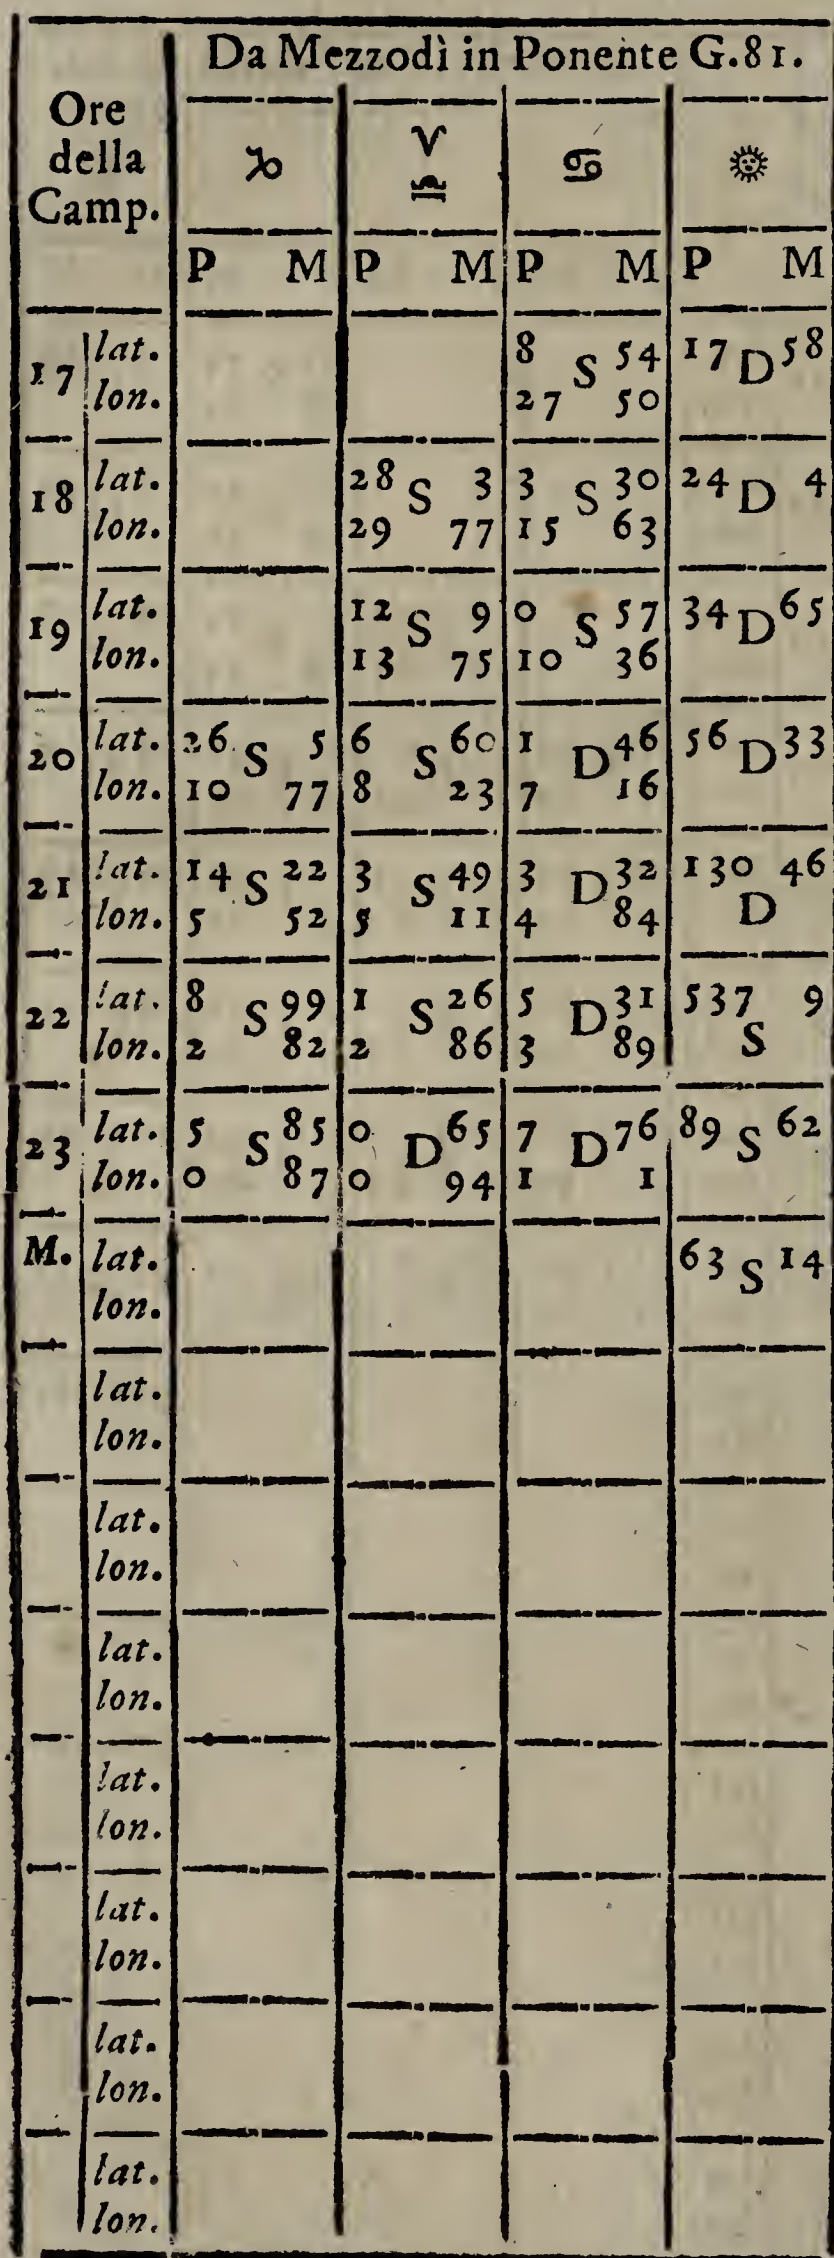 Da Mezzodì in Ponente G.81.
Ore della Camp.
♑ ♈ ♎ ♋ ☀
P M P M P M P M
17 lat. 8 S 54 17 D 58
lon. 27 50
18 lat. 28 S 3 3 S 30 24 D 4
lon. 29 77 15 63
19 lat. 12 S 9 0 S 57 34 D 65
lon. 13 75 10 36
20 lat. 26 S 5 6 S 60 1 D 46 56 D 33
lon. 10 77 8 23 7 16
21 lat. 14 S 22 3 S 49 3 D 32 130 46
lon. 5 52 5 11 4 84 D
22 lat. 8 S 99 1 S 26 5 D 31 537 9
lon. 2 82 2 86 3 89 S
23 lat. 5 S 85 0 D 65 7 D 76 89 S 62
lon. 0 87 0 94 1 1
M. lat. 63 S 14
lon.
lat.
lon.
lat.
lon.
lat.
lon.
lat.
lon.
lat.
lon.
lat.
lon.
lat.
lon.